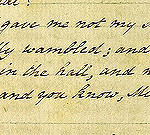 gave me not my
ly wambled; and
in the hall, and
and you know, Mr